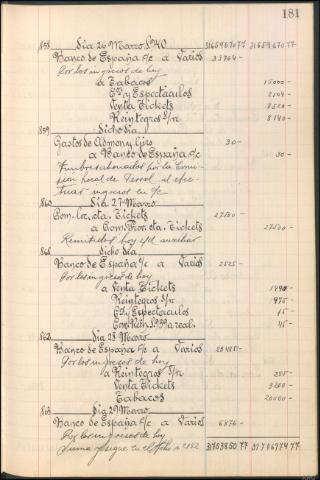 181
858 Día 26 Marzo 1940 3165967077 3165967077
Banco de España c/c a Varios 33764-
Por los ingresos de hoy
a Tabacos 15000-
Espectaculos
Venta Tickets 8520-
Reintegros S/n 8140-
859 Dicho día
Gastos de Admon y Giro 30-
a Banco de España c/c 30-
Timbres abonados por la Comi-
sion local de Ferrol al efec-
tuar ingresos en c/c
860 Día 27 Marzo
Com. loc. cta. Tickets 27500-
a Com. Prov. cta. Tickets 27500-
Remitidos hoy
861 Dicho día
Banco de España c/c a Varios 2525-
Por los ingresos de hoy
a Venta Tickets 1490-
Reintegros S/n 975-
Espectaculos 15-
45-
862 Día 28 Marzo
Banco de España c/c a Varios
Por los ingresos de hoy
a Reintegros S/n
Venta Tickets 3200-
Tabacos 20000-
863 Día 29 Marzo
Banco de España c/c a Varios 6876-
Por los ingresos de hoy
Suma y sigue en el folio nº 182